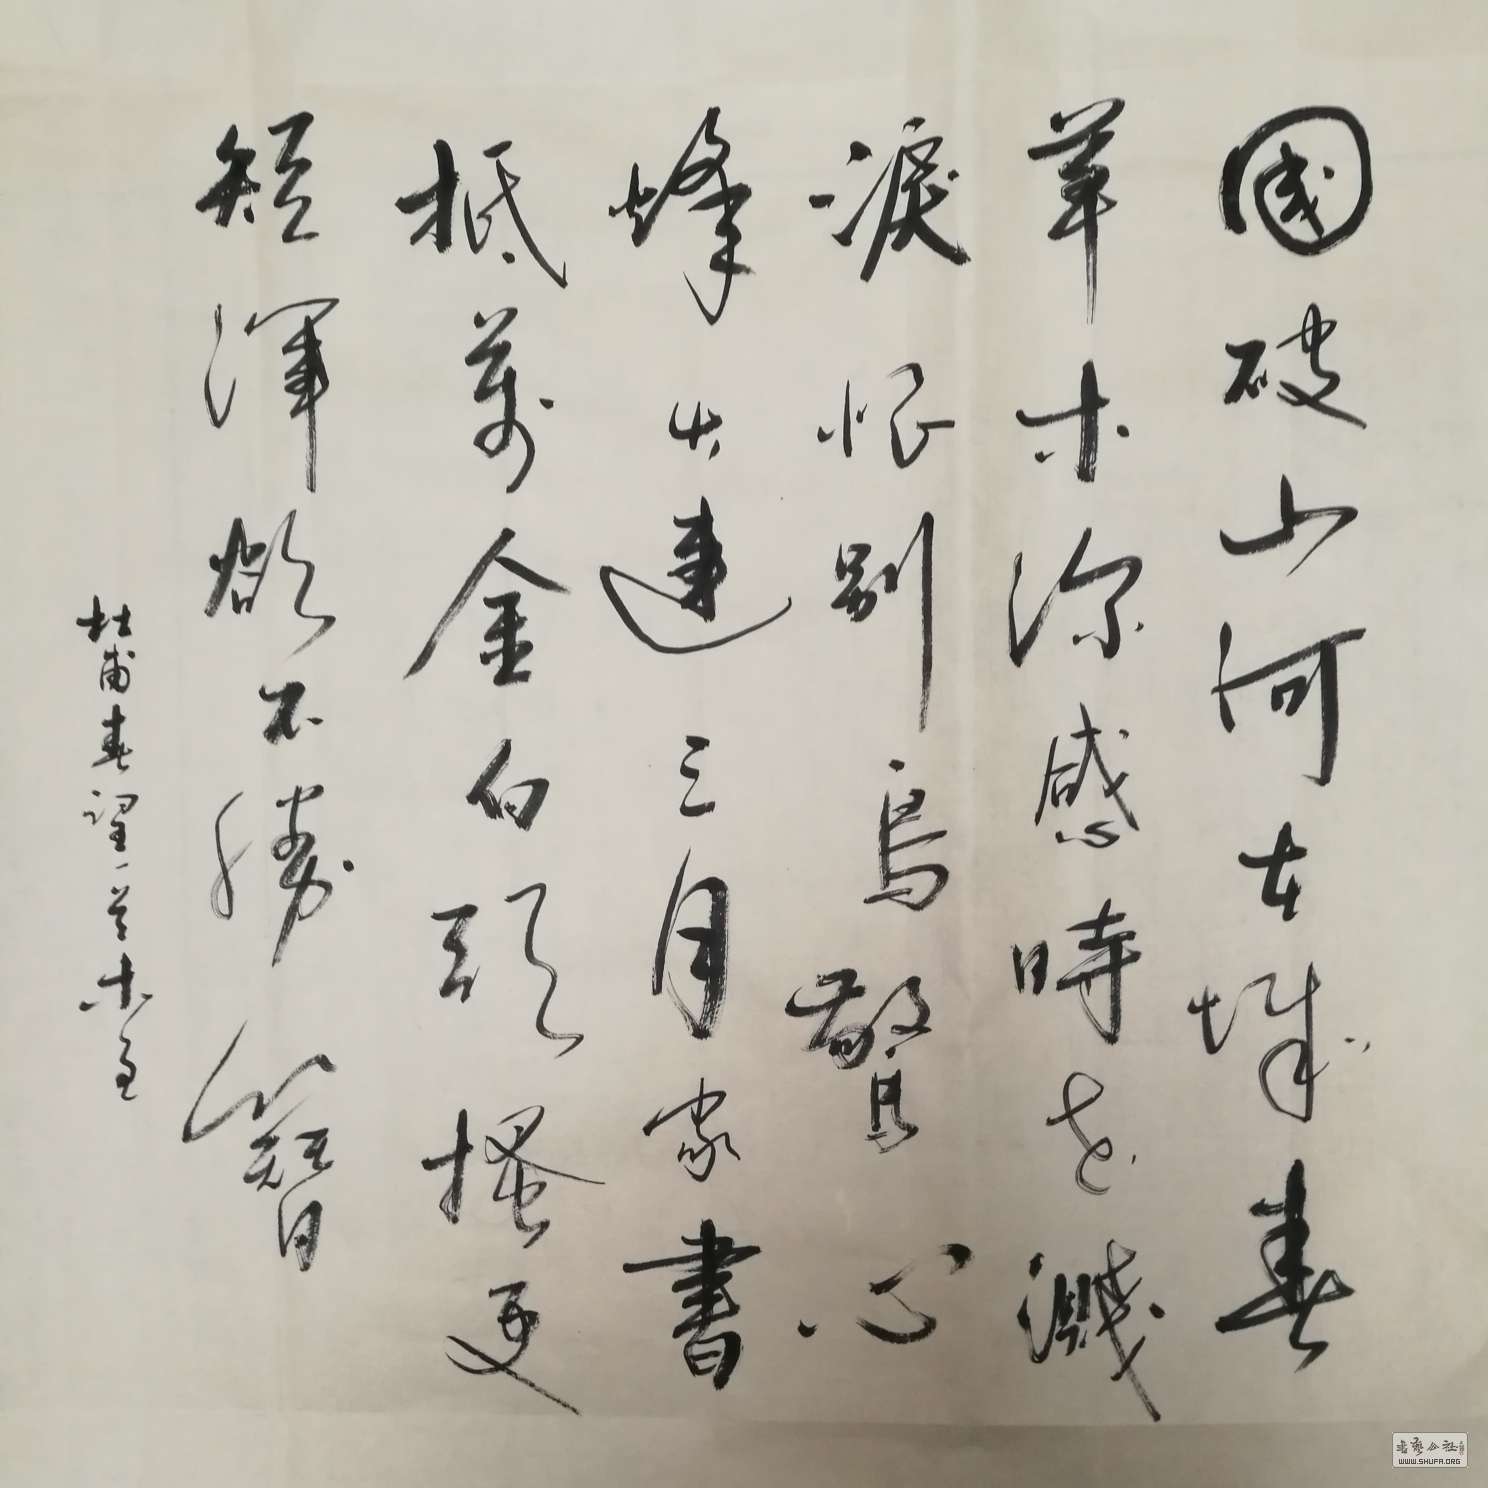 國破山河在城春
草木深感時花濺
淚恨別鳥驚心
烽火連三月家書
抵萬金白頭搔更
短渾欲不勝簪
杜甫春望一首木
书艺公社
WWW.SHUFA.ORG